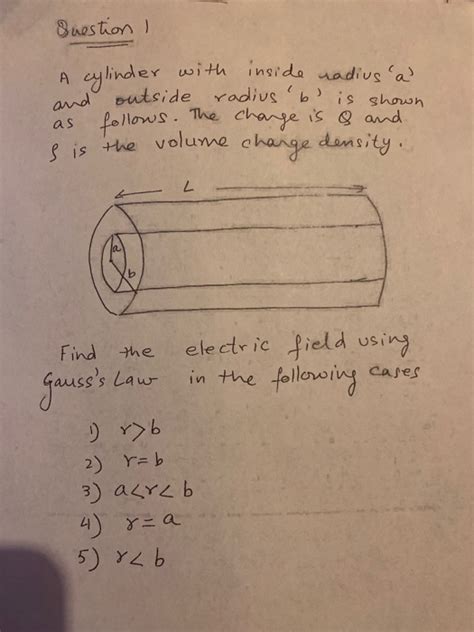 Question 1
A cylinder with inside radius 'a'
and outside radius 'b' is shown
as follows. The charge is Q and
ρ is the volume charge density.
L
a
b
Find the electric field using
Gauss's Law in the following cases
1) r>b
2) r=b
3) a<r<b
4) r=a
5) r<b